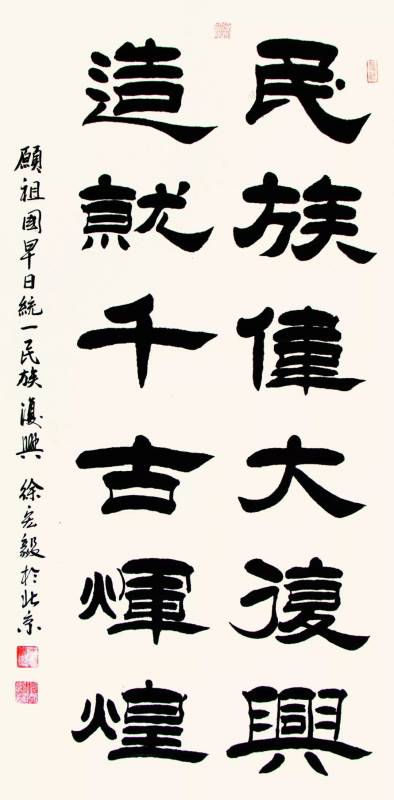 民族偉大復興
造就千古煇煌
願祖國早日統一民族復興 徐宏毅於北京